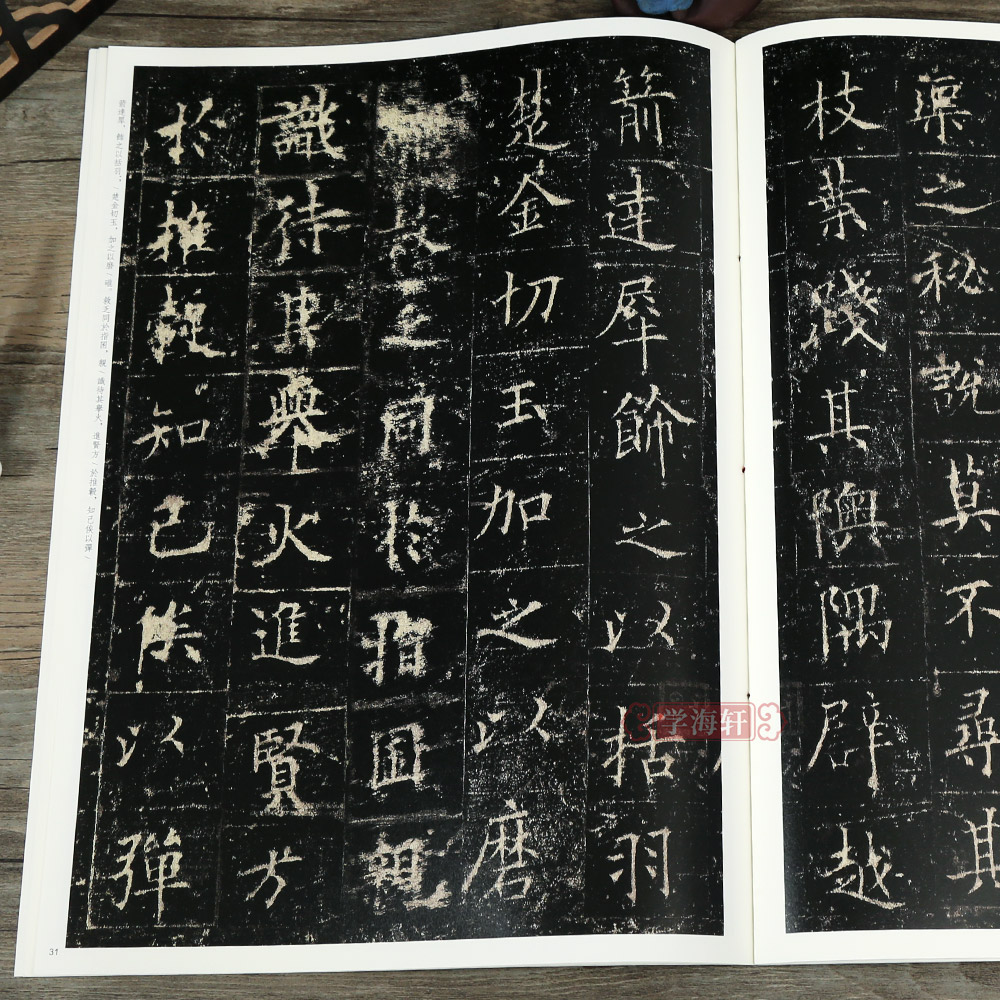 渠之秘說莫不尋其
枝葉踐其隩隅辟越
箭達犀飾之以括羽
楚金切玉加之以磨
故至同於指囷親
識待其舉火進賢方
於推轂知己俟以彈
箭達犀，飾之以括羽；/楚金切玉，加之以磨/礲。同於指囷，親/識待其舉火，進賢方/於推轂，知己俟以彈/
31
学海轩